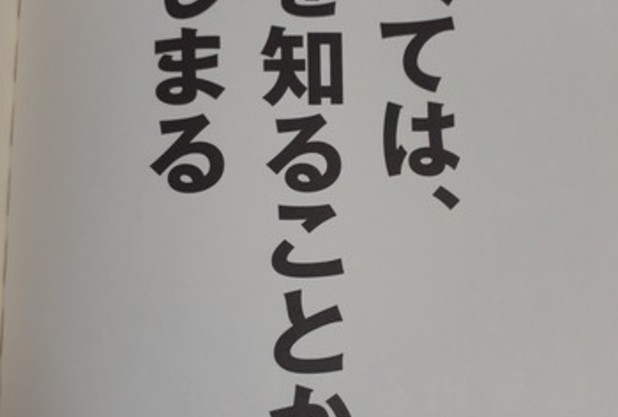 ては、
を知ることか
まる